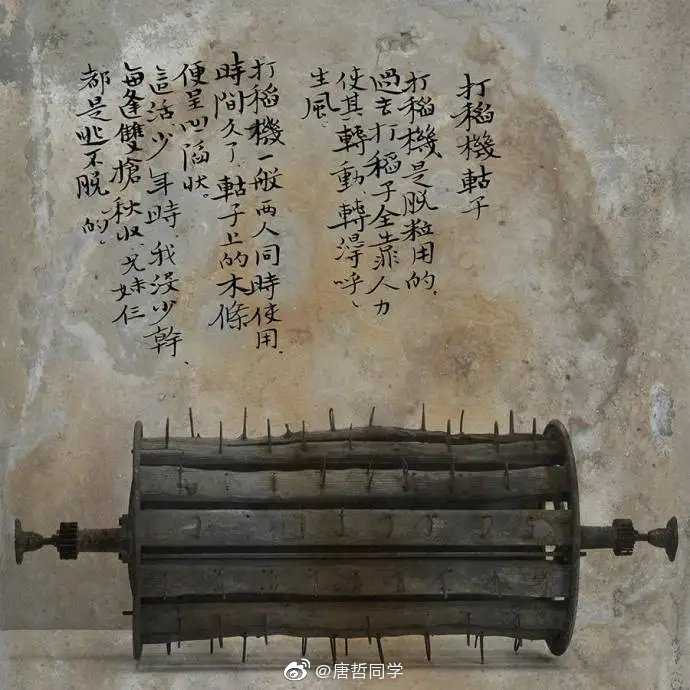 打稻機軲子
打稻機是脫粒用的,
過去打稻子全靠人力
使其轉動轉得呼、
生風、
打稻機一般兩人同時使用,
時間久了,軲子上的木條
便呈凹陷狀。
這活少年時,我沒少幹、
每逢雙槍秋收、兄妹仨
都是逃不脫的。
@唐哲同学